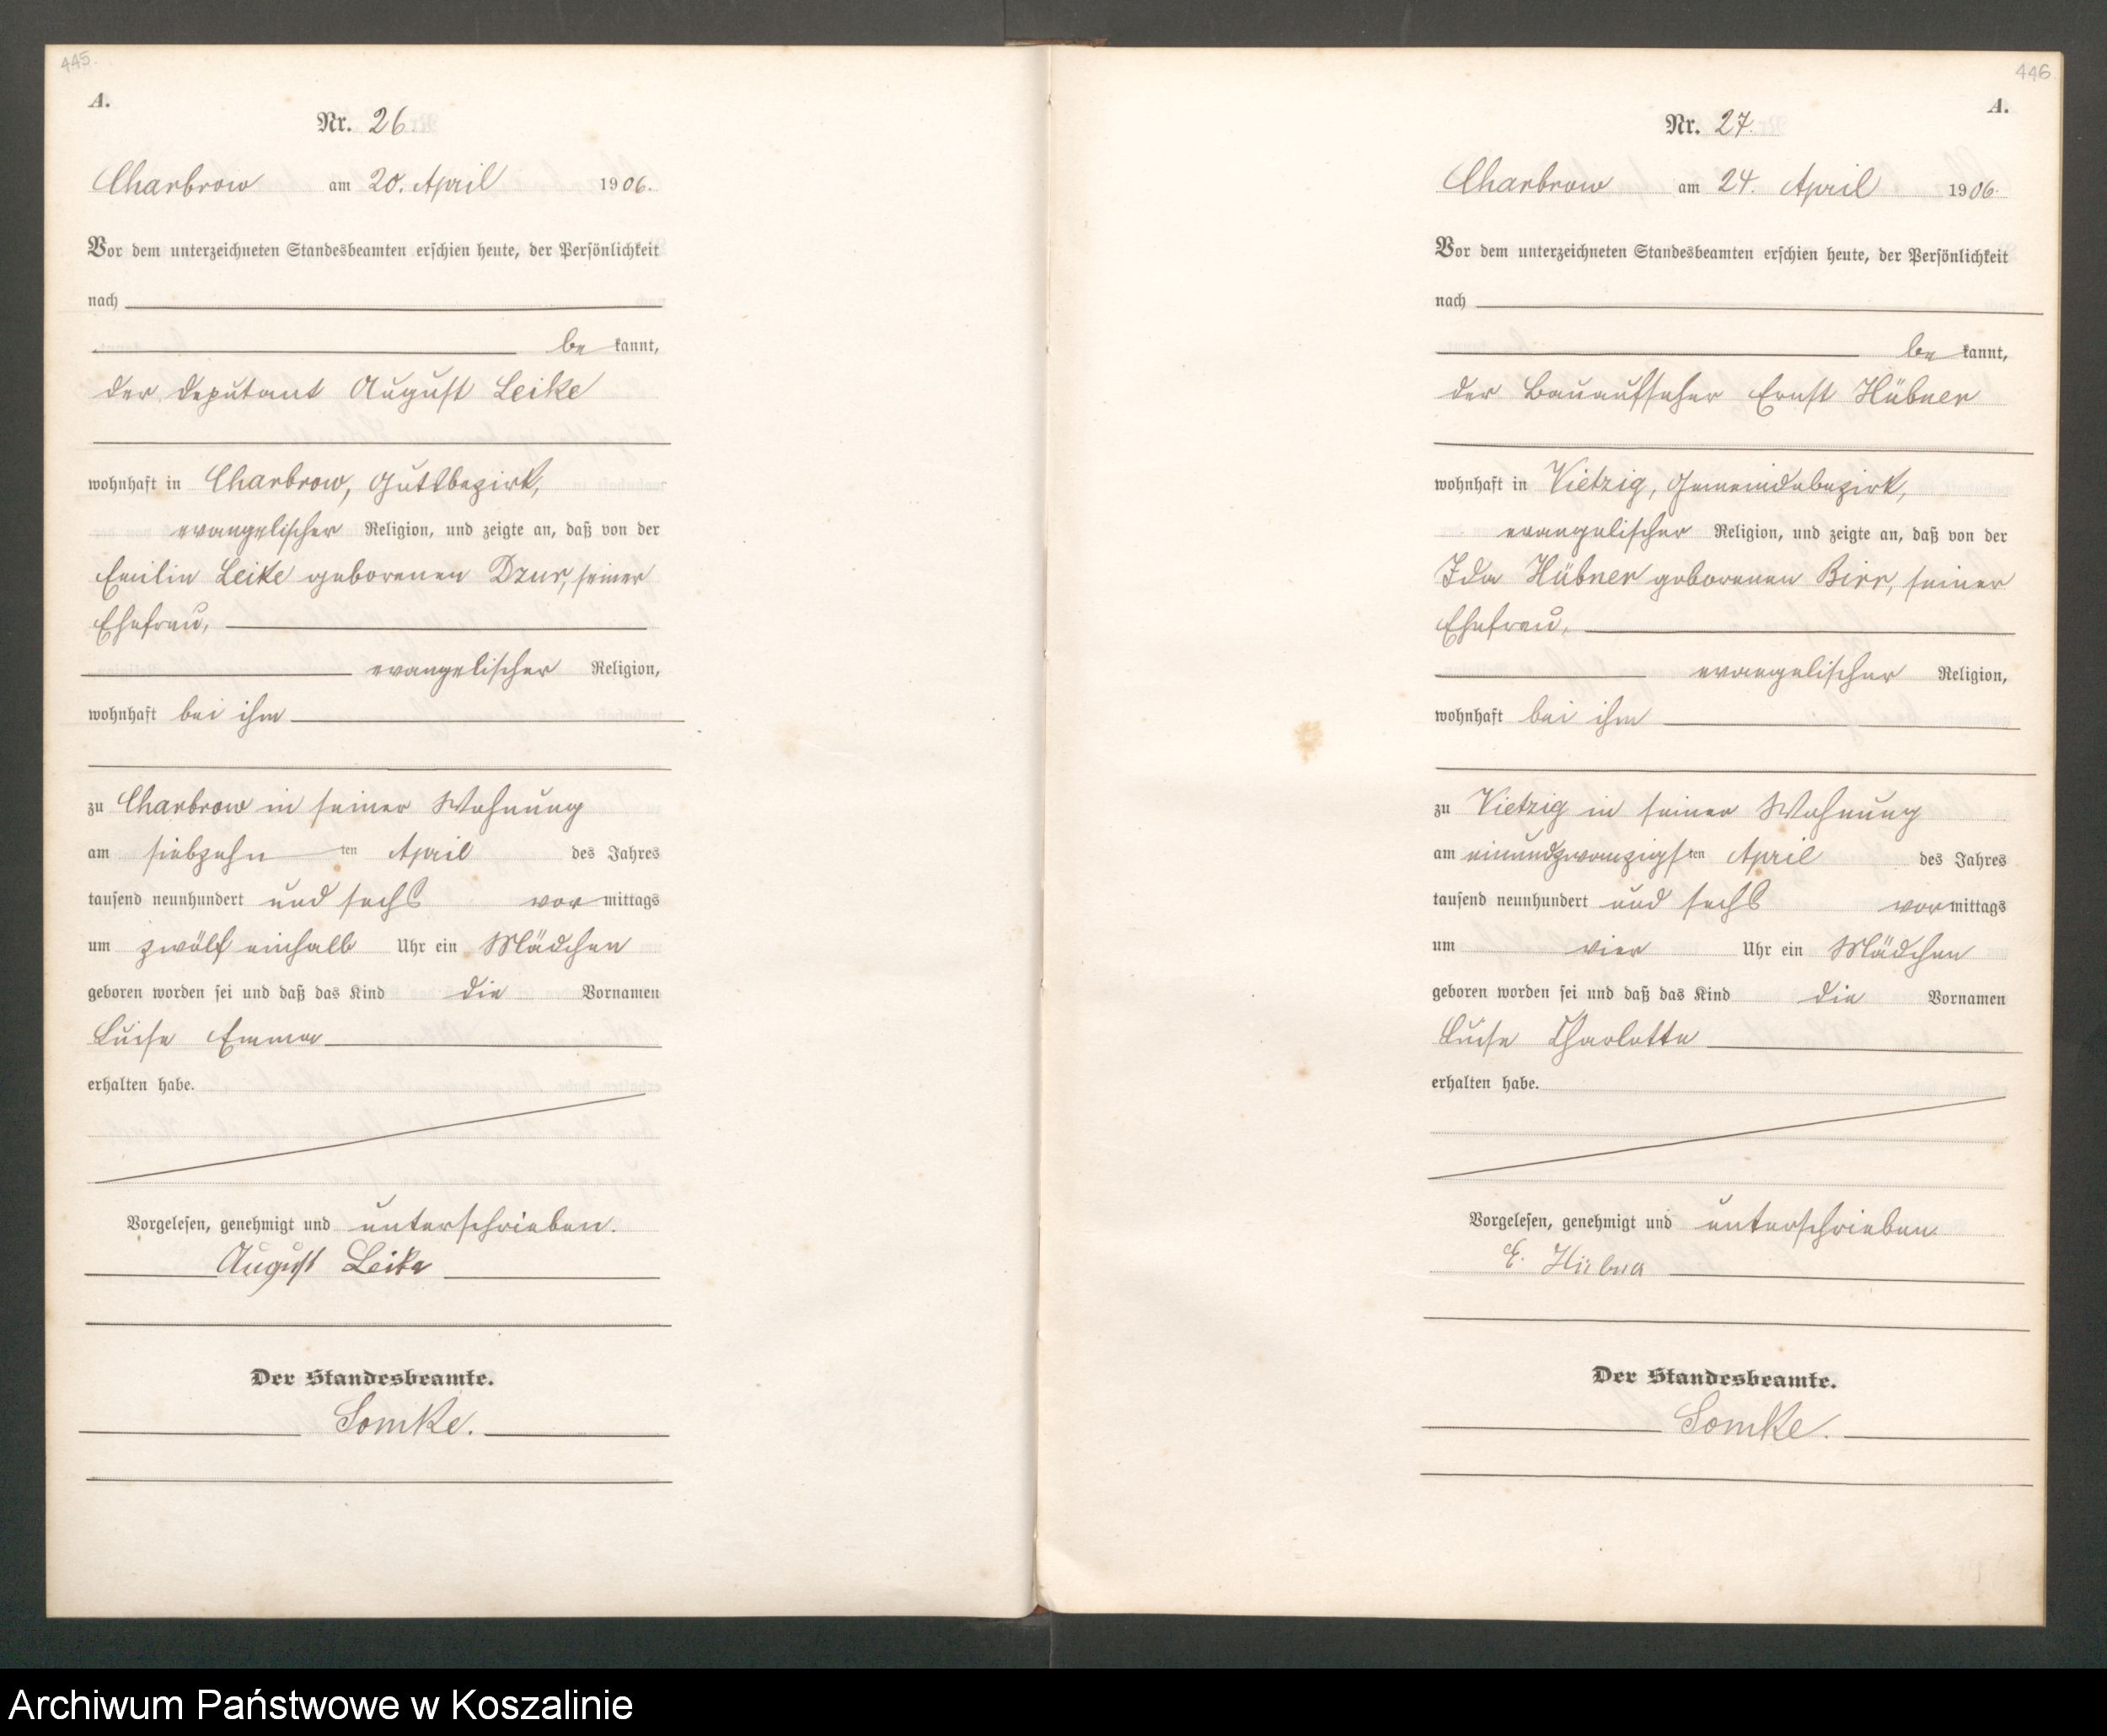 445.
A.
Nr. 26
Charbrow am 20. April 1906.
Vor dem unterzeichneten Standesbeamten erschien heute, der Persönlichkeit
nach
be kannt,
der Deputant August Leike
wohnhaft in Charbrow, Gutsbezirk,
evangelischer Religion, und zeigte an, daß von der
Emilie Leike geborenen Dzur, seiner
Ehefrau,
evangelischer Religion,
wohnhaft bei ihm
zu Charbrow in seiner Wohnung
am siebzehn ten April des Jahres
tausend neunhundert und sechs vor mittags
um zwölf einhalb Uhr ein Mädchen
geboren worden sei und daß das Kind die Vornamen
Luise Emma
erhalten habe.
Vorgelesen, genehmigt und unterschrieben.
August Leike
Der Standesbeamte.
Somke.
446
A.
Nr. 27.
Charbrow am 24. April 1906.
Vor dem unterzeichneten Standesbeamten erschien heute, der Persönlichkeit
nach
be kannt,
der Bauaufseher Ernst Hübner
wohnhaft in Vietzig, Gemeindebezirk,
evangelischer Religion, und zeigte an, daß von der
Ida Hübner geborenen Birr, seiner
Ehefrau,
evangelischer Religion,
wohnhaft bei ihm
zu Vietzig in seiner Wohnung
am einundzwanzigsten April des Jahres
tausend neunhundert und sechs vormittags
um vier Uhr ein Mädchen
geboren worden sei und daß das Kind die Vornamen
Luise Charlotte
erhalten habe.
Vorgelesen, genehmigt und unterschrieben
E. Hübner
Der Standesbeamte.
Somke.
Archiwum Państwowe w Koszalinie